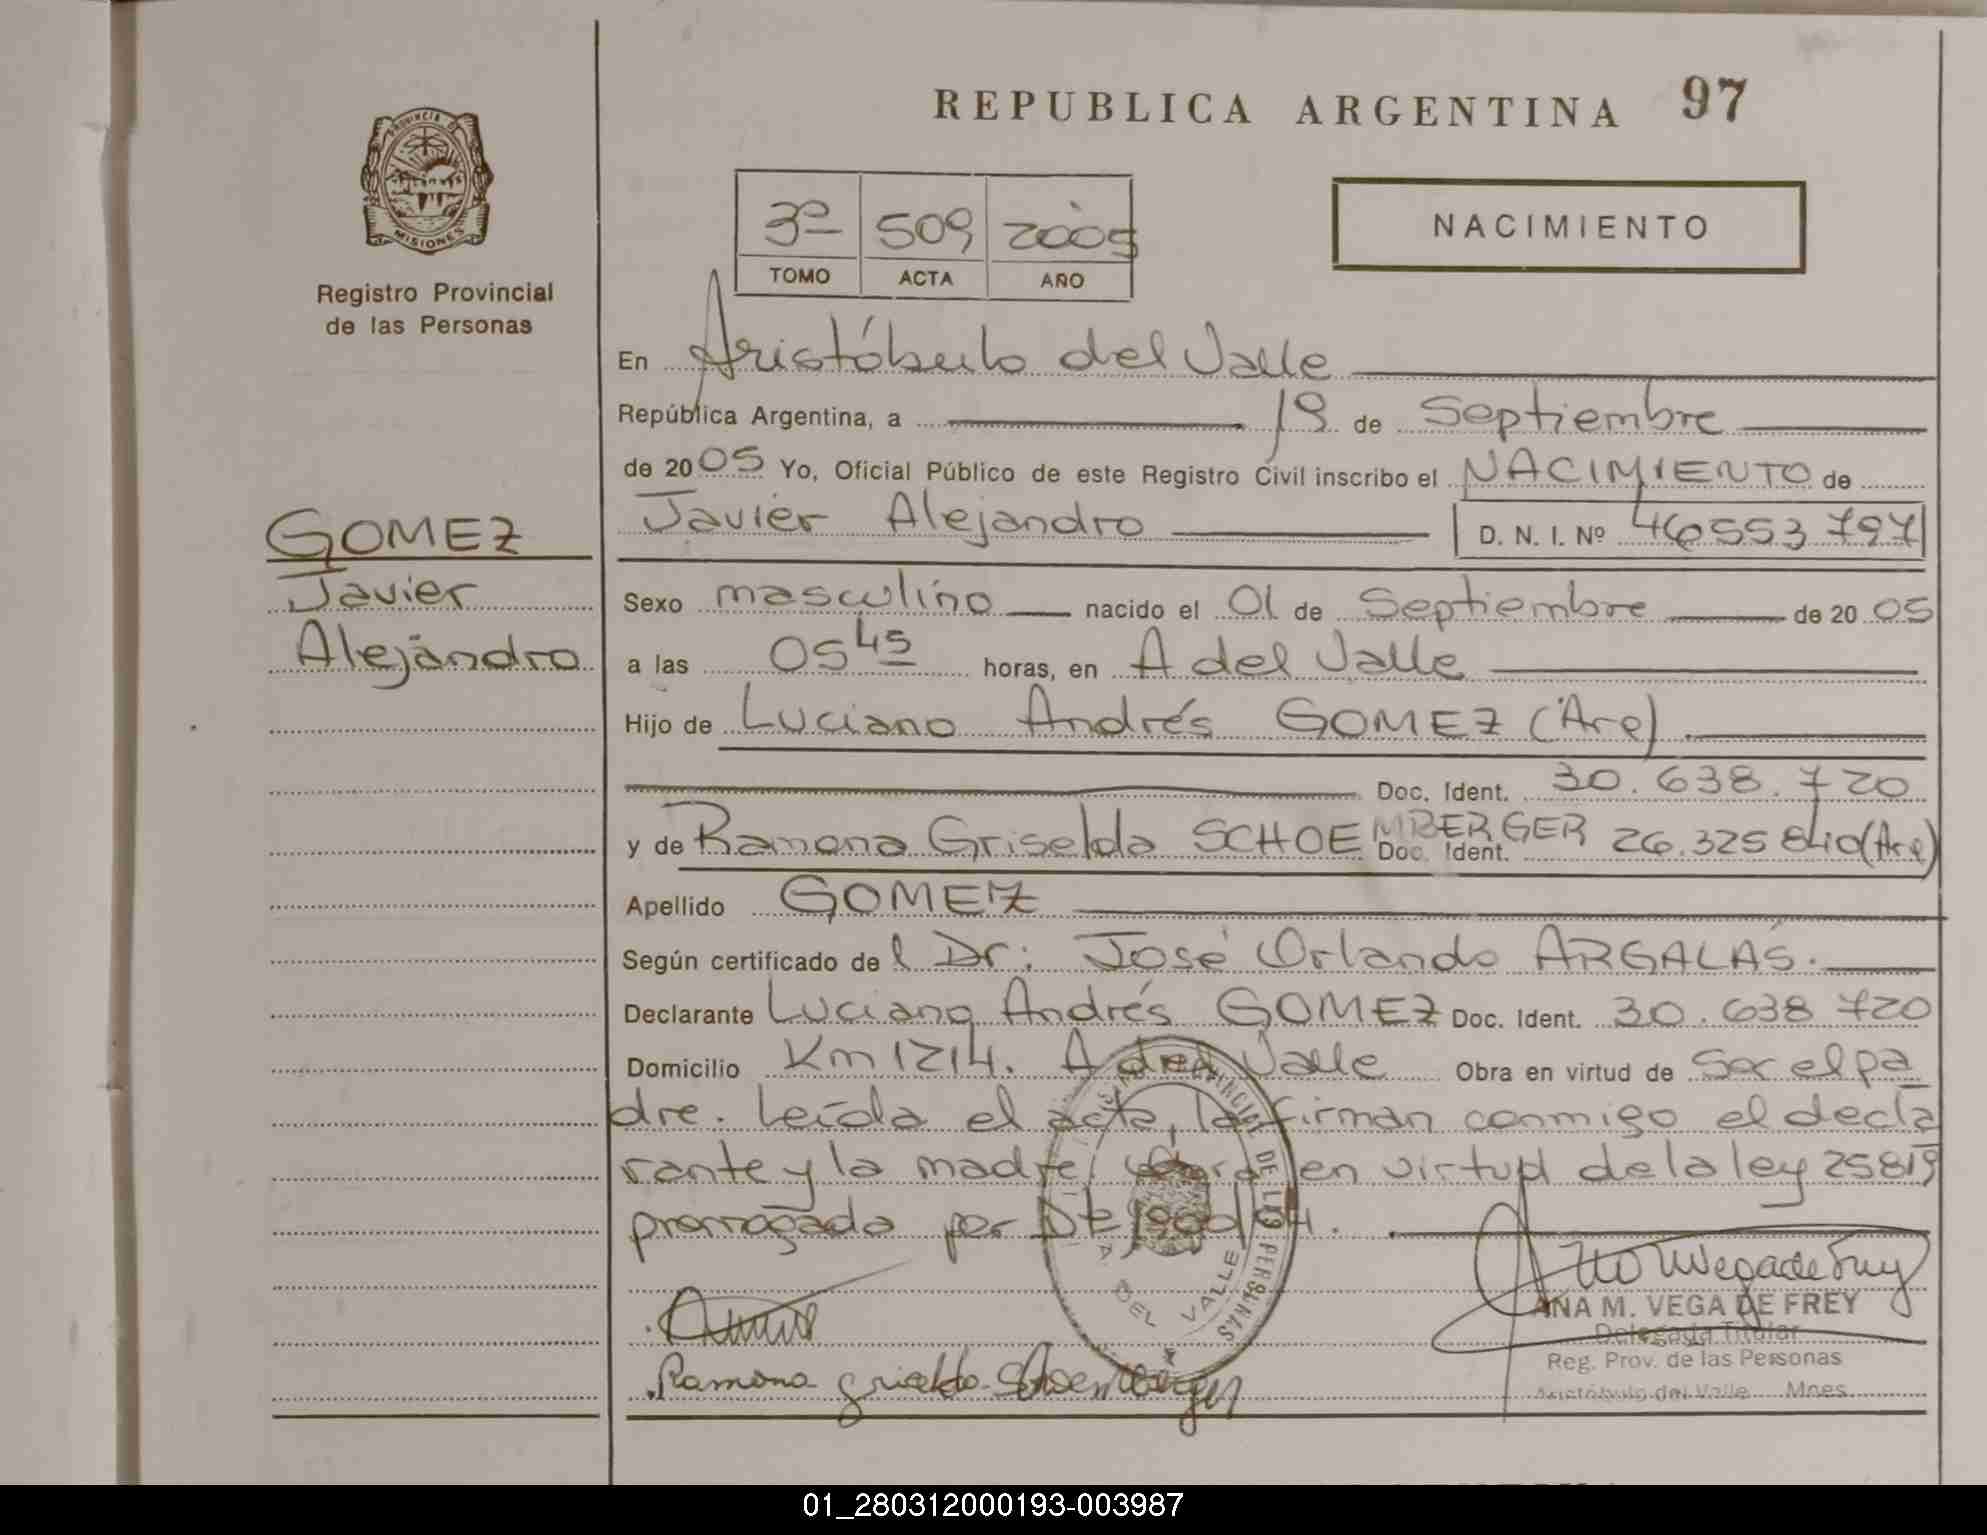 REPUBLICA ARGENTINA 97
PROVINCIA DE
MISIONES
Registro Provincial
de las Personas
3º 509 2005
TOMO ACTA AÑO
NACIMIENTO
En Aristóbulo del Valle
República Argentina, a 19 de Septiembre
de 2005 Yo, Oficial Público de este Registro Civil inscribo el NACIMIENTO de
Javier Alejandro D. N. I. Nº 46553797
GOMEZ
Javier
Alejandro
Sexo masculino nacido el 01 de Septiembre de 2005
a las 05 45 horas, en A del Valle
Hijo de Luciano Andrés GOMEZ (Arg)
Doc. Ident. 30.638.720
y de Ramona Griselda SCHOEMBERGER Doc. Ident. 26.325 840 (Arg)
Apellido GOMEZ
Según certificado del Dr: José Orlando ARGALAS.
Declarante Luciano Andrés GOMEZ Doc. Ident. 30.638 720
Domicilio Km 1214. A del Valle Obra en virtud de Ser el pa
dre. Leída el acta, la firman conmigo el decla
rante y la madre. en virtud de la ley 25819
por
Ramona Griselda Schoemberger
DE LAS PERSONAS
A. DEL VALLE
ANA M. VEGA DE FREY
Delegada Titular
Reg. Prov. de las Personas
Aristóbulo del Valle Mnes.
01_280312000193-003987